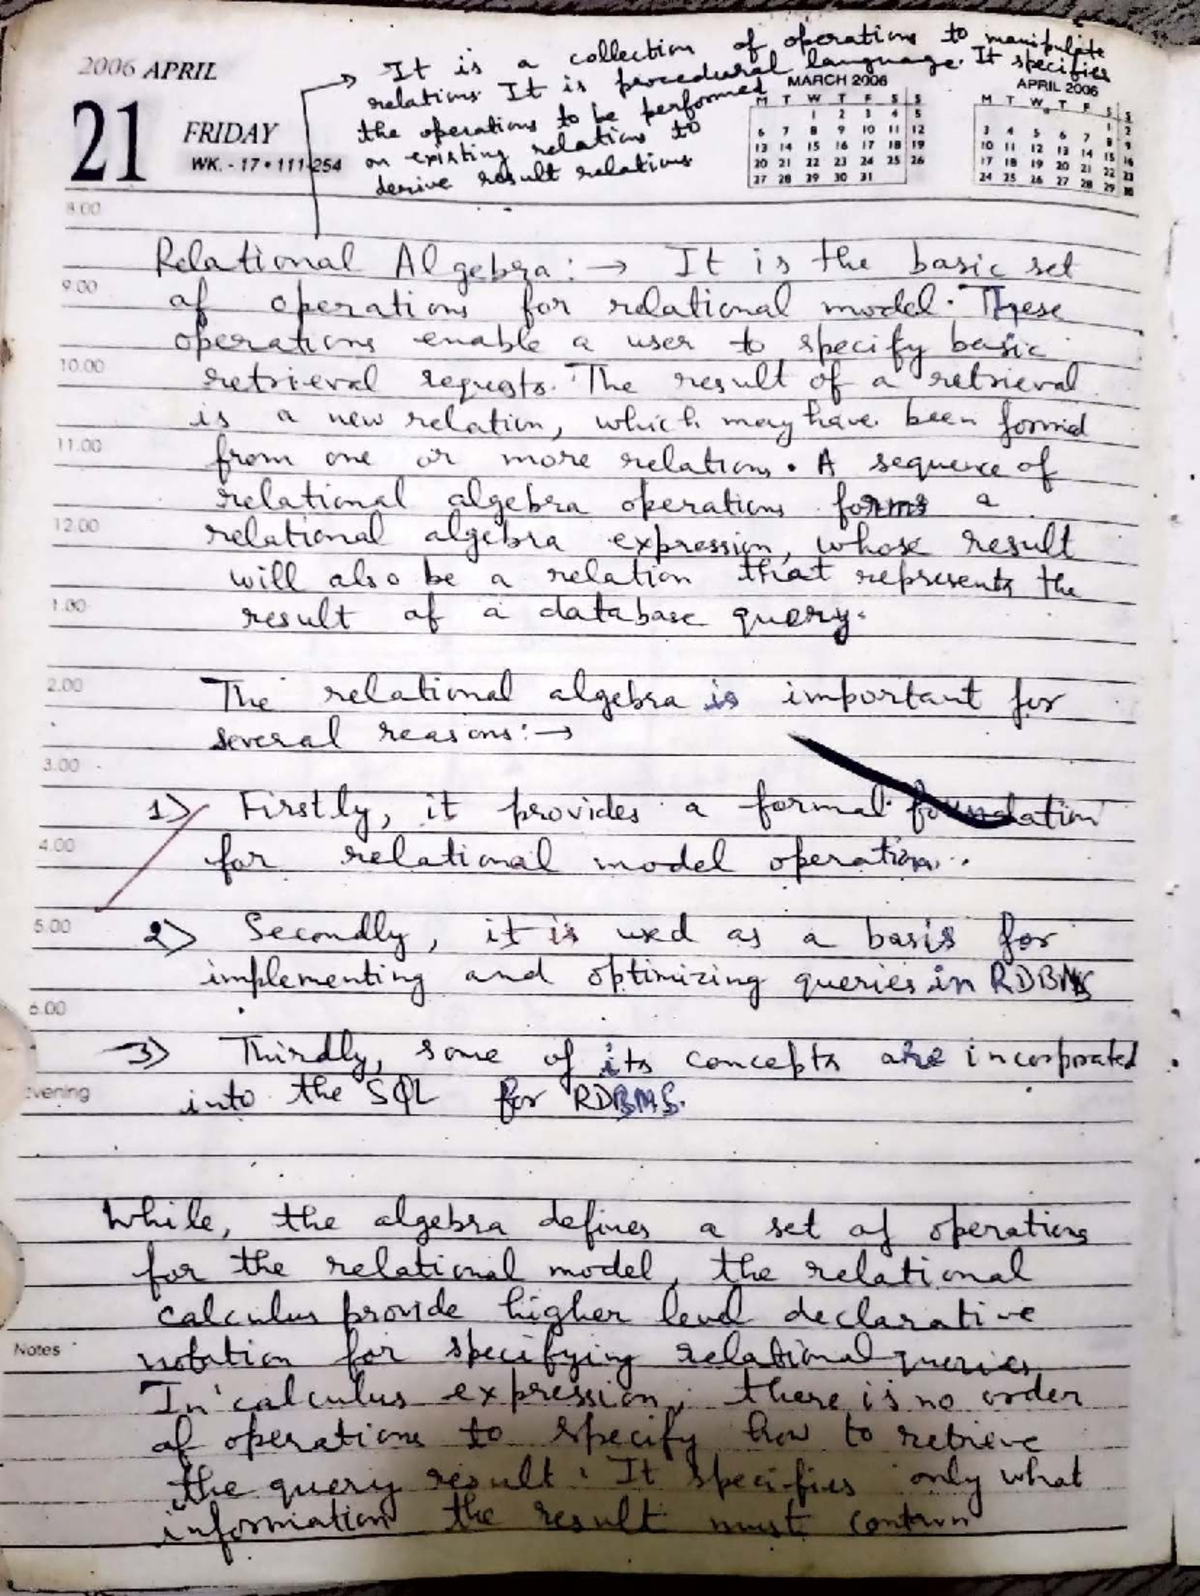 2006 APRIL
21 FRIDAY
WK. - 17 • 111-254
It is a collection of operations to manipulate
relations. It is procedural language. It specifies
the operations to be performed
on existing relations to
derive result relations
MARCH 2006
M T W T F S S
1 2 3 4 5
6 7 8 9 10 11 12
13 14 15 16 17 18 19
20 21 22 23 24 25 26
27 28 29 30 31
APRIL 2006
M T W T F S S
1 2
3 4 5 6 7 8 9
10 11 12 13 14 15 16
17 18 19 20 21 22 23
24 25 26 27 28 29 30
8.00
Relational Algebra :→ It is the basic set
9.00
of operations for relational model. These
operations enable a user to specify basic
10.00
retrieval requests. The result of a retrieval
is a new relation, which may have been formed
11.00
from one or more relations. A sequence of
relational algebra operations forms a
12.00
relational algebra expression, whose result
will also be a relation that represents the
1.00
result of a database query.
2.00
The relational algebra is important for
several reasons :→
3.00
1> Firstly, it provides a formal foundation
4.00
for relational model operations.
5.00
2> Secondly, it is used as a basis for
implementing and optimizing queries in RDBMS
6.00
3> Thirdly, some of its concepts are incorporated
evening
into the SQL for RDBMS.
While, the algebra defines a set of operations
for the relational model, the relational
calculus provide higher level declarative
Notes
notation for specifying relational queries
In calculus expression, there is no order
of operations to specify how to retrieve
the query result. It specifies only what
information the result must contain